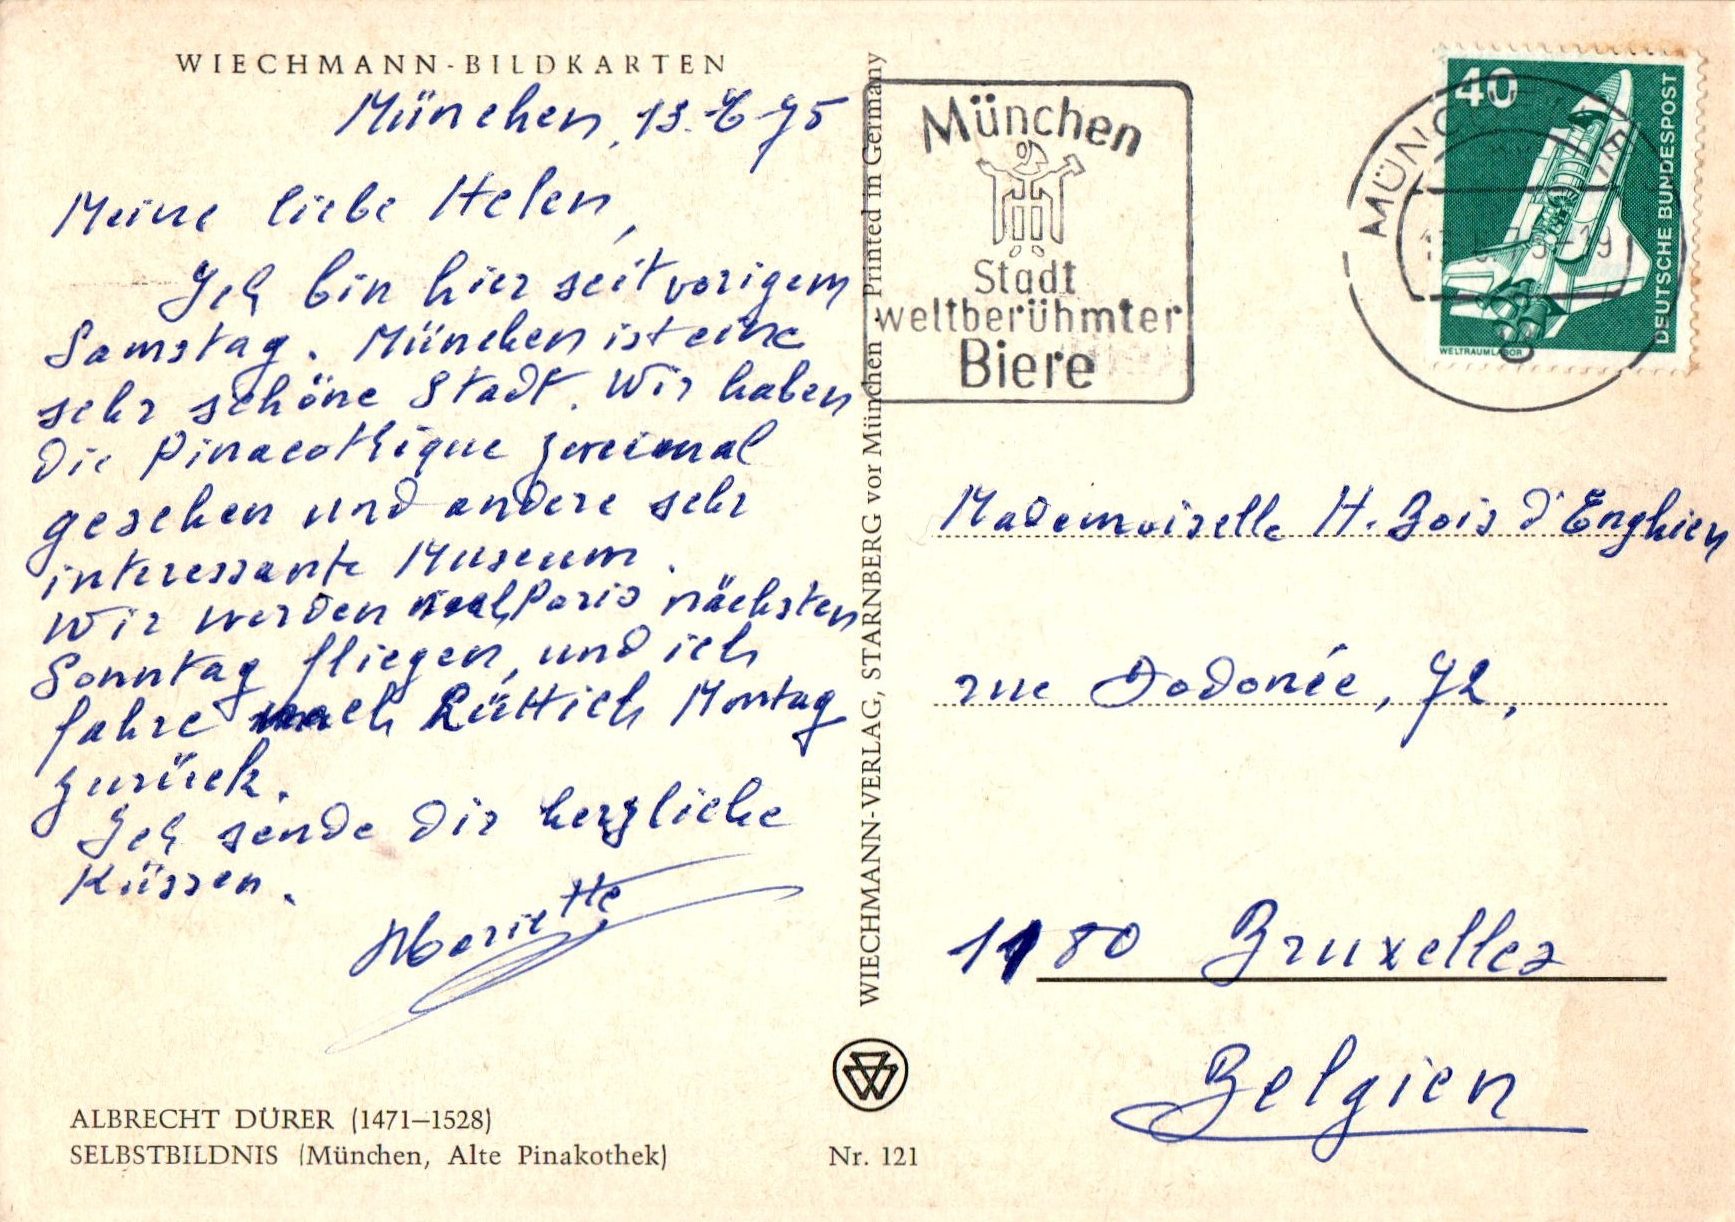 WIECHMANN-BILDKARTEN
München, 13-6-75
Meine liebe Helen,
Ich bin hier seit vorigem
Samstag. München ist eine
sehr schöne Stadt. Wir haben
die Pinacothique zweimal
gesehen und andere sehr
interessante Museum.
Wir werden nach Paris nächsten
Sonntag fliegen, und ich
fahre nach Lüttich Montag
zurück.
Ich sende Dir herzliche
Küssen.
Mariette
ALBRECHT DÜRER (1471–1528)
SELBSTBILDNIS (München, Alte Pinakothek)
Nr. 121
WIECHMANN-VERLAG, STARNBERG vor München · Printed in Germany
München
Stadt
weltberühmter
Biere
40
DEUTSCHE BUNDESPOST
WELTRAUMLABOR
Mademoiselle H. Bois d'Enghien
rue Dodonée, 72,
1180 Bruxelles
Belgien